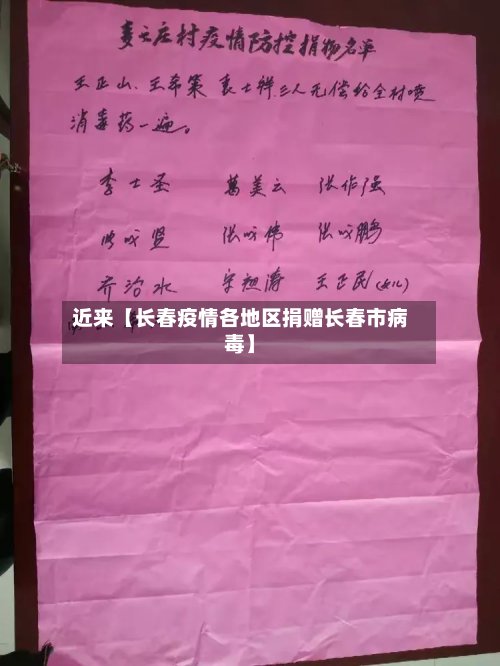 村疫情防控捐物名单
王正山、王希策 袁士祥 三人无偿给全村喷
消毒药一遍。
李士圣 葛美云 张作强
贤 张成伟 张成鹏
乔治水 宋旭涛 王正民(女儿)
近来【长春疫情各地区捐赠长春市病
毒】